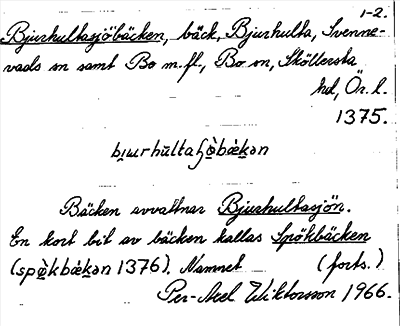 1-2.
Bjurhultasjöbäcken, bäck, Bjurhulta, Svenne-
vads sn samt Bo m.fl., Bo sn, Sköllersta
hd, Ör. l.
1375.
Bäcken avvattnar Bjurhultasjön.
En kort bit av bäcken kallas Spökbäcken
(spø̀kbækən 1376). Namnet (forts.)
Per-Axel Wiktorsson 1966.